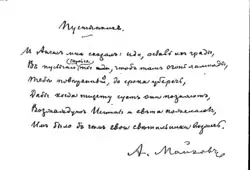 Пустынникъ.
И Ангелъ мнѣ сказалъ: иди, оставь ихъ грады,
Въ пустыню скройся ты, чтобъ тамъ огонь лампады,
Тебѣ повѣренный, до срока уберечь,
Дабы когда тщету суетъ они познаютъ,
Возжаждутъ Истины и свѣта пожелаютъ,
Имъ было бъ чѣмъ свои свѣтильники возжечь.
А. Майковъ